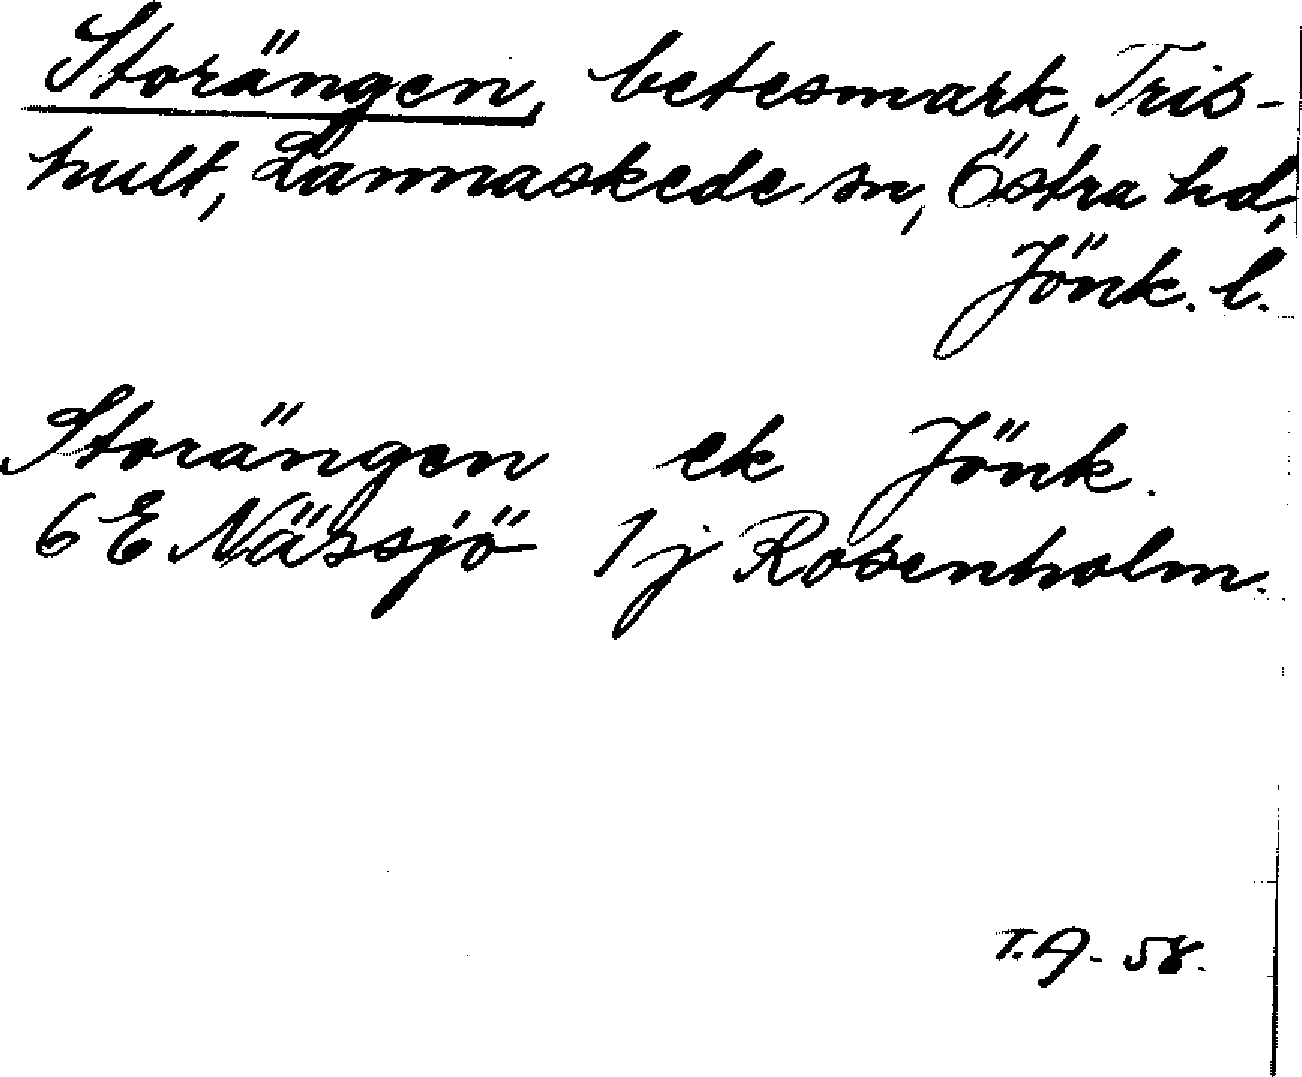 Storängen, betesmark, Tris-
hult, Lannaskede sn, Östra hd,
Jönk. l.
Storängen ek Jönk.
6 E Nässjö 1j Rosenholm.
T.A. 58.